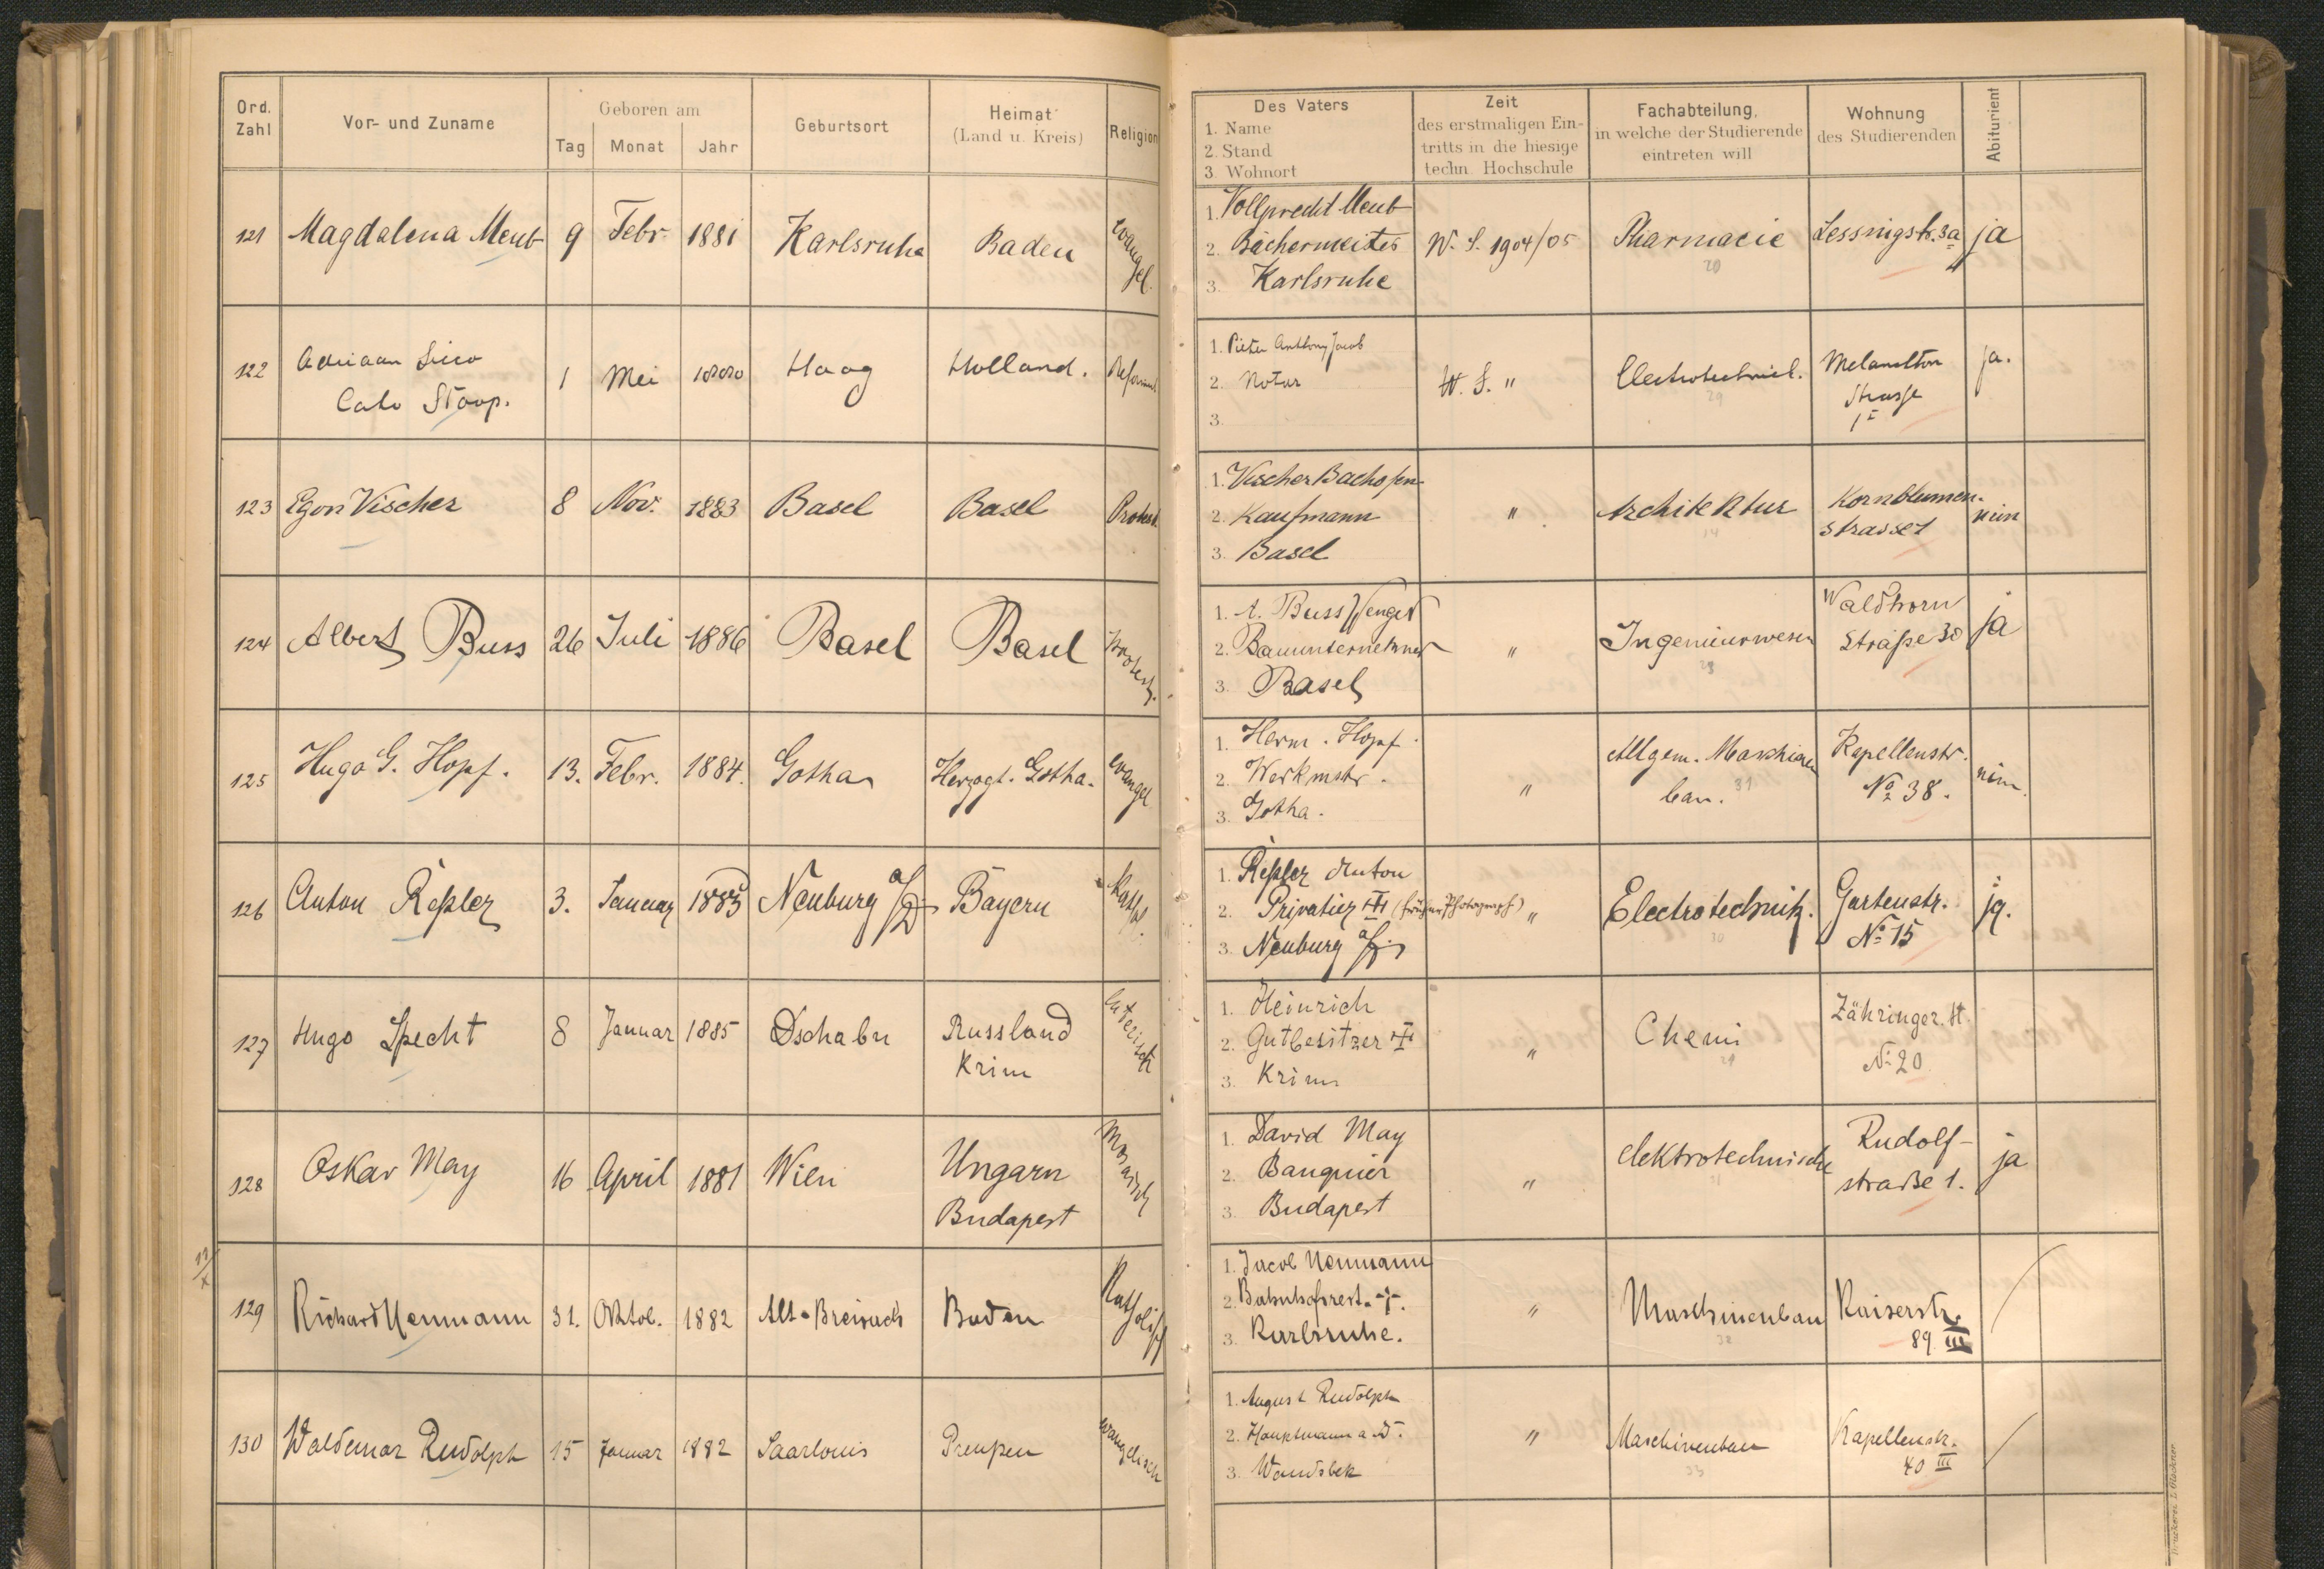 Ord. Zahl
Vor- und Zuname
Geboren am
Tag
Monat
Jahr
Geburtsort
Heimat
(Land u. Kreis)
Religion
Des Vaters
1. Name
2. Stand
3. Wohnort
Zeit
des erstmaligen Ein-
tritts in die hiesige
techn. Hochschule
Fachabteilung,
in welche der Studierende
eintreten will
Wohnung
des Studierenden
Abiturient
121 Magdalena Meub 9 Febr. 1881 Karlsruhe Baden evangel.
1. Vollprecht Meub
2. Bäckermeister W. S. 1904/05 Pharmacie Lessingstr. 3a ja
20
3. Karlsruhe
122 Adriaan Sicco
Cato Stoop. 1 Mei 1880 Haag Holland. Reformiert
1. Pieter Anthony Jacob
2. Notar W. S. " Electrotechniek. Melanchton
Strasse
1 I ja.
29
3.
123 Egon Vischer 8 Nov. 1883 Basel Basel Protest.
1. Vischer Bachofen
2. Kaufmann " Architektur Kornblumen-
strasse 1 nein
14
3. Basel
124 Albert Buss 26 Juli 1886 Basel Basel Protest.
1. A. Buss Wenger
2. Bauunternehmer " Ingenieurwesen Waldhorn
Straße 30 ja
3. Basel
125 Hugo G. Hopf. 13. Febr. 1884. Gotha Herzogt. Gotha. evangel
1. Herm. Hopf.
2. Werkmstr. " Allgem. Maschinen
bau. 31 Kapellenstr.
No 38. nein.
3. Gotha.
126 Anton Reßler 3. Januar 1883 Neuburg a/D Bayern Kathl.
1. Reßler Anton
2. Privatier (früher Photograph) " Electrotechnik. Gartenstr.
No 15 ja.
30
3. Neuburg a/D.
127 Hugo Specht 8 Januar 1885 Dschabu Russland
Krim luterisch
1. Heinrich
2. Gutbesitzer " Chemi Zähringer. st.
No 20
3. Krim
128 Oskar May 16 April 1881 Wien Ungarn
Budapest Mosaisch
1. David May
2. Banquier " elektrotechnische Rudolf-
straße 1. ja
3. Budapest
129 Richard Neumann 31. Oktob. 1882 Alt-Breisach Baden Katholisch
1. Jacob Neumann
2. Bahnhofrest. " Maschinenbau Kaiserstr.
89. III
32
3. Karlsruhe.
130 Waldemar Rudolph 15 Januar 1882 Saarlouis Preußen evangelisch
1. August Rudolph
2. Hauptmann a. D. " Maschinenbau Kapellenstr.
40 III
33
3. Wandsbek